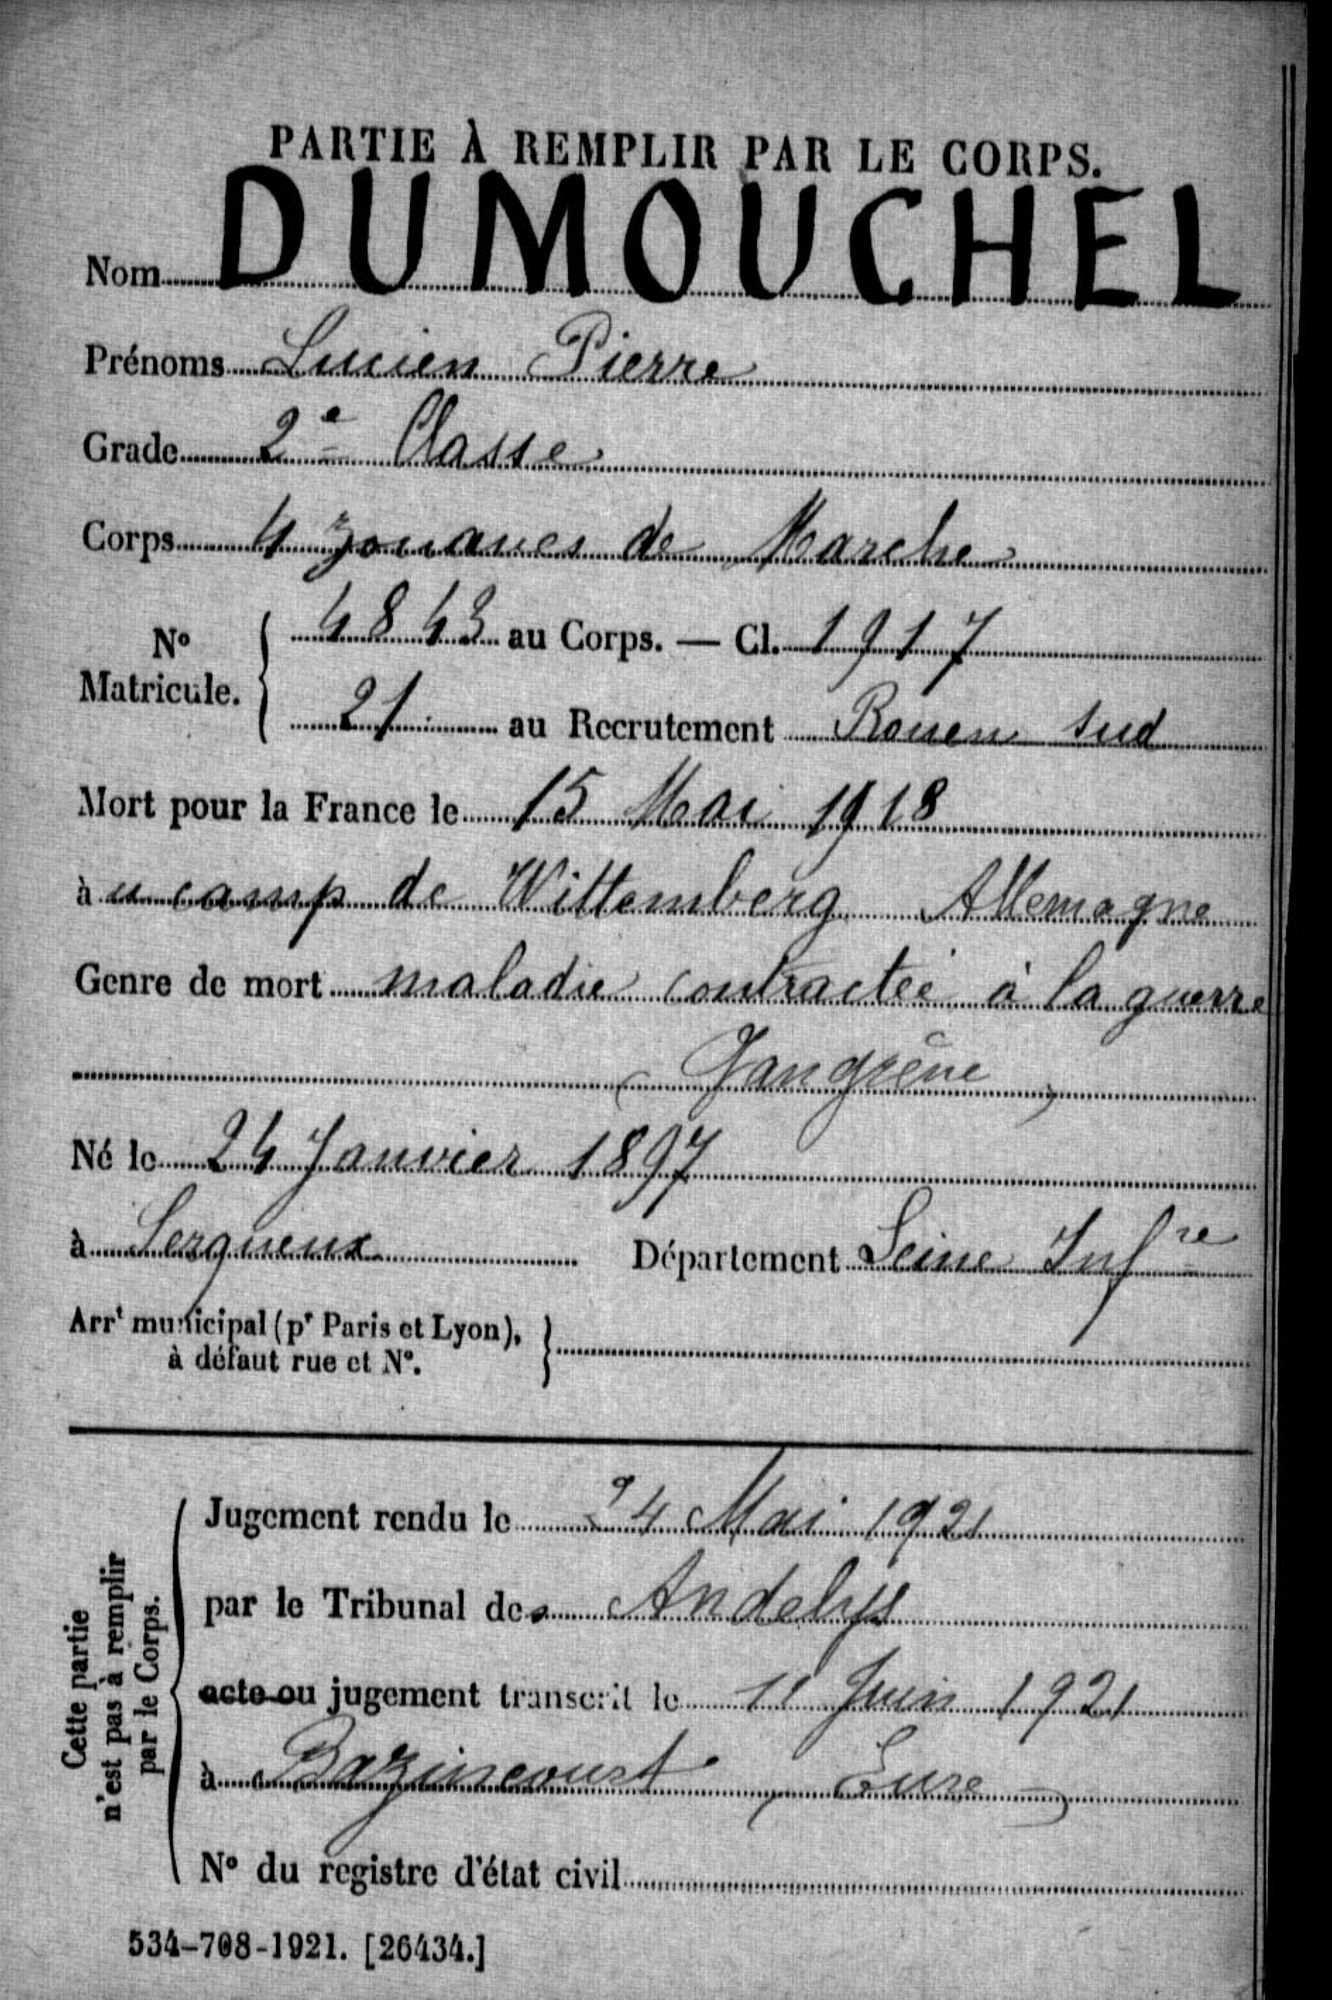 PARTIE À REMPLIR PAR LE CORPS.
Nom DUMOUCHEL
Prénoms Lucien Pierre
Grade 2e Classe
Corps 4 zouaves de Marche
No Matricule. { 4843 au Corps. — Cl. 1917
21 au Recrutement Rouen sud
Mort pour la France le 15 Mai 1918
à u camp de Wittemberg Allemagne
Genre de mort maladie contractée à la guerre
( Gangrène )
Né le 24 Janvier 1897
à Serqueux Département Seine Infre
Arrt municipal (pr Paris et Lyon), à défaut rue et No. }
Cette partie n'est pas à remplir par le Corps.
Jugement rendu le 24 Mai 1921
par le Tribunal des Andelys
acte ou jugement transcrit le 11 Juin 1921
à Bazincourt ( Eure )
No du registre d'état civil
534-708-1921. [26434.]